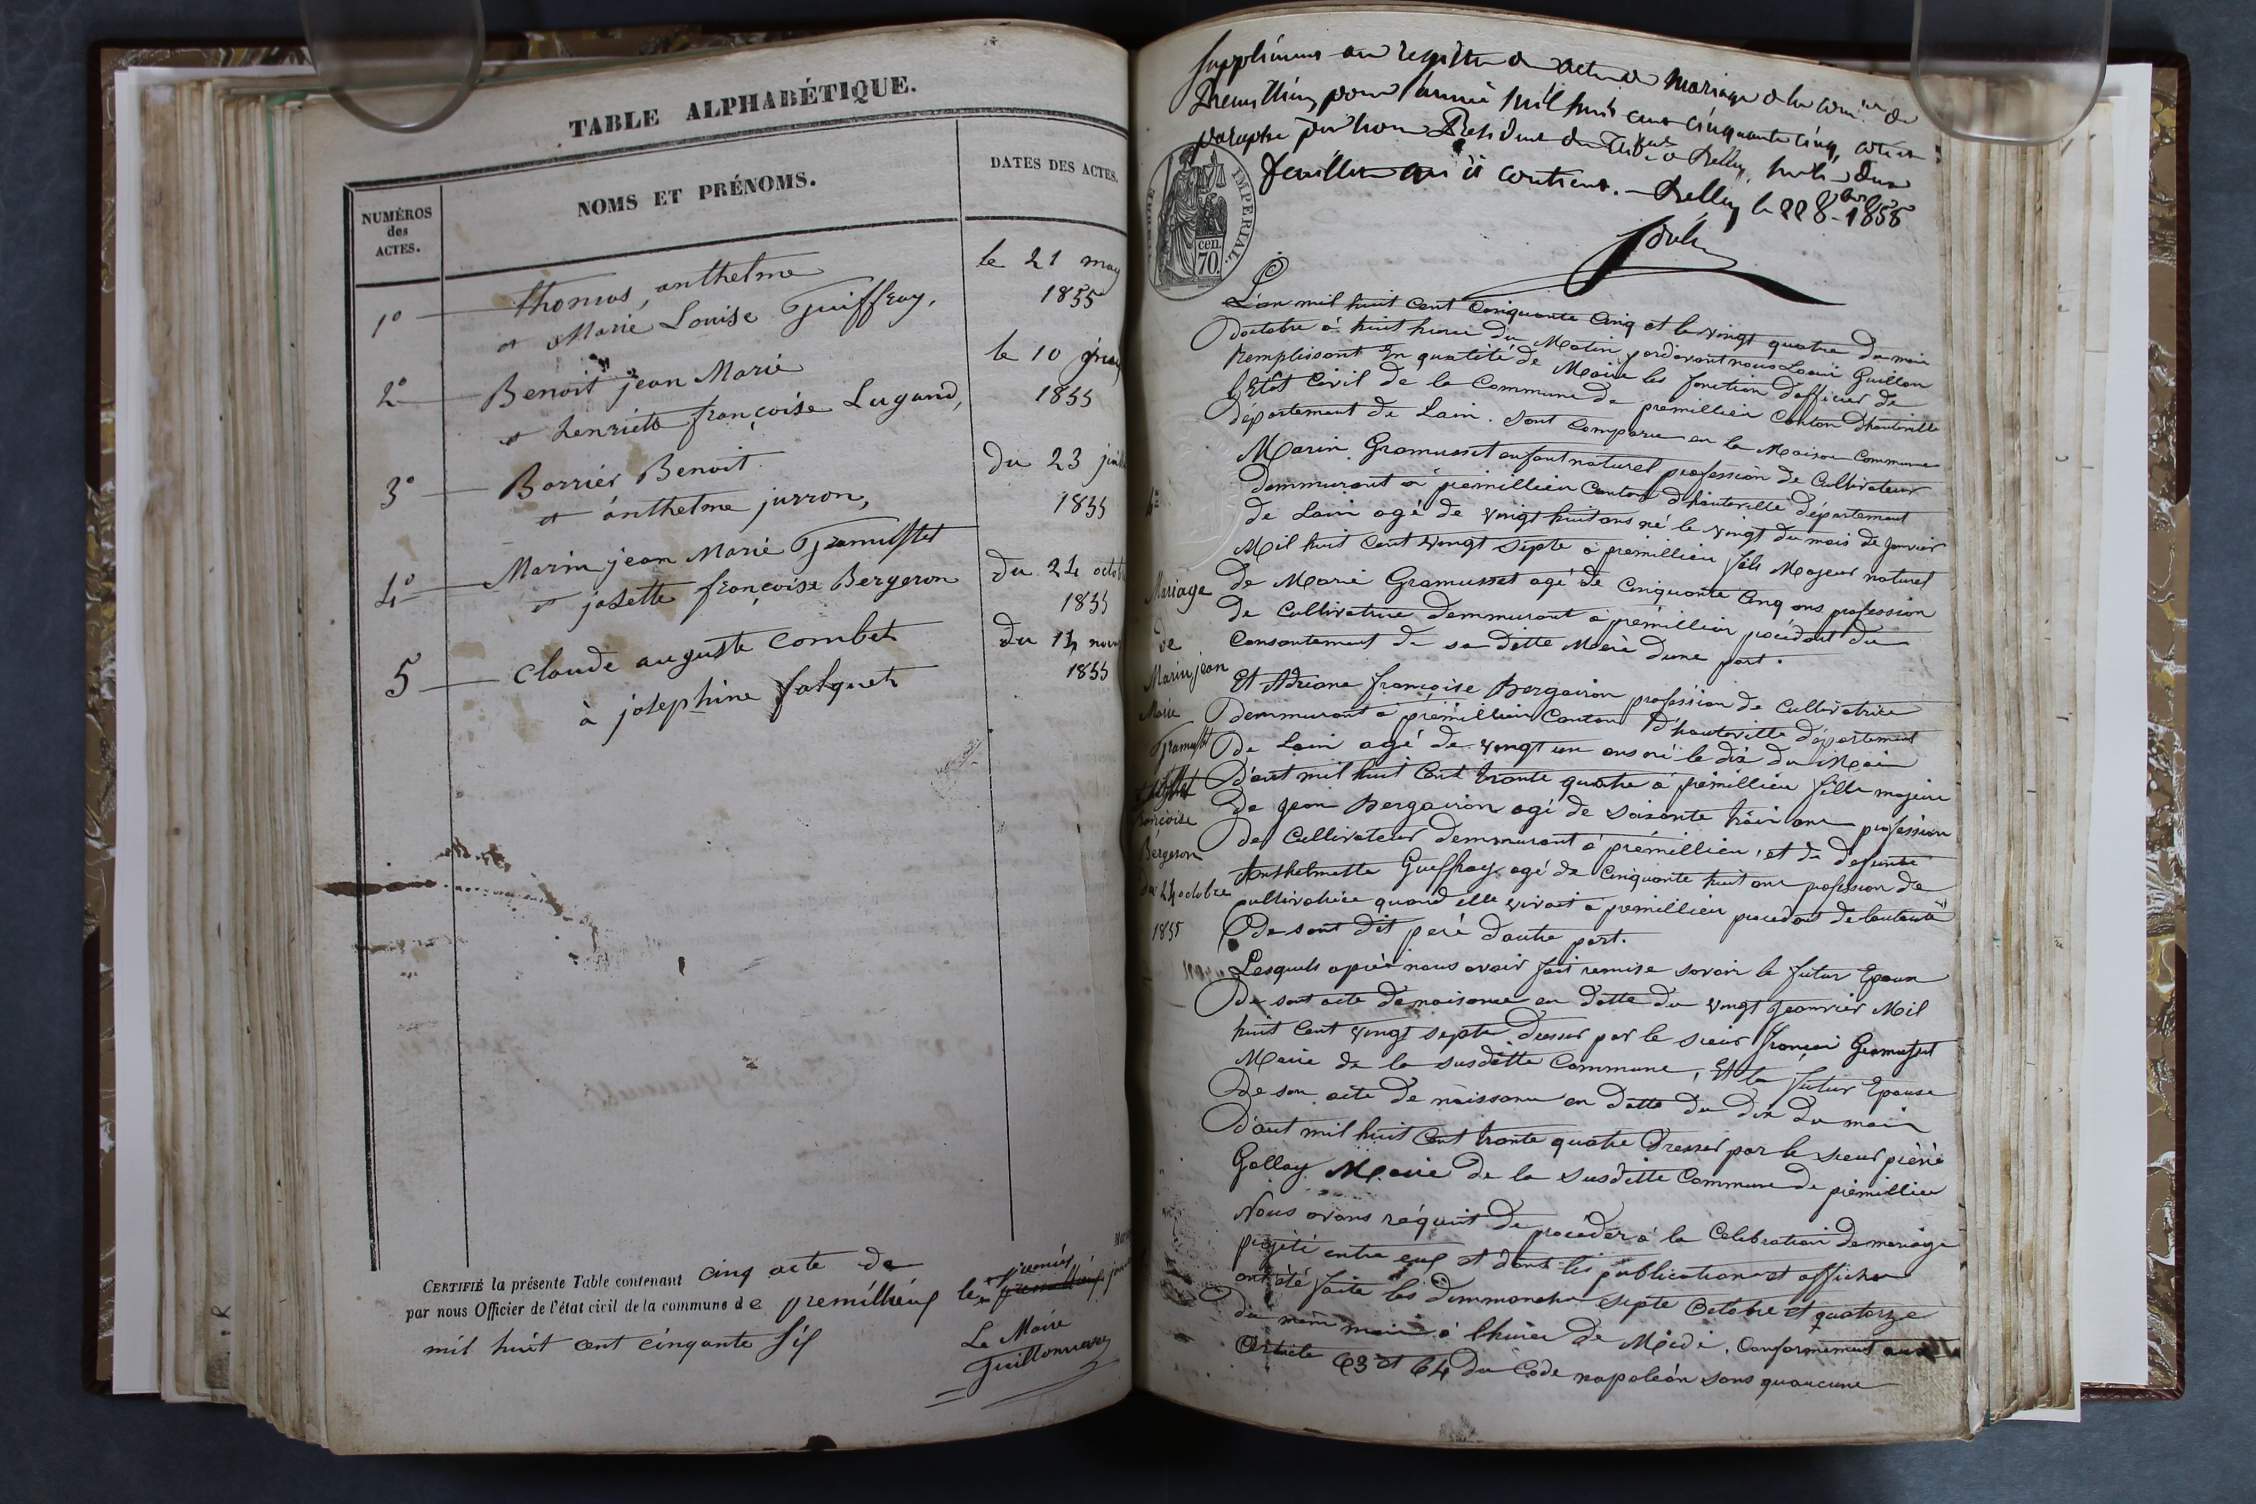 TABLE ALPHABÉTIQUE.
NUMÉROS des ACTES.
NOMS ET PRÉNOMS.
DATES DES ACTES.
1° thomas, anthelme le 21 may
et Marie Louise Guiffray, 1855
2° Benoit jean Marie le 10
et henriette françoise Lugand, 1855
3° Borrier Benoit du 23
et anthelme jurron, 1855
4° Marin jean Marie Gramusset du 24
et josette françoise Bergeron 1855
5 claude auguste combet du 14
à josephine falquet 1855
CERTIFIÉ la présente Table contenant cinq acte de
par nous Officier de l'état civil de la commune de premillieux le premier
mil huit cent cinquante six
Le Maire
Guillon
Supplément au registre des actes de Mariage de la Com.ne de
Premillieu, pour l'année mil huit cent cinquante cinq, coté et
paraphé par nous Président du Tribal de Belley, sur les deux
feuillets qu'il contient. - Belley le 22 8bre 1855
TIMBRE IMPÉRIAL
cen. 70.
L'an mil huit cent Cinquante Cinq et le vingt quatre du mois
doctobre à huit heure du Matin pardevant nous Louis Guillon
Remplissant En quatité de Maire les fonction dofficier de
l'Etat Civil de la Commune de premillieu Canton Dhauteville
département de Lain. Sont comparu en la Maison Commune
Marin Gramusset enfant naturel profession de Cultivateur
demmurant à premillieu Canton d'hauteville département
de Lain agé de vingt huit ans né le vingt du mois de janvier
Mil huit Cent vingt septe à premillieu fils Majeur naturel
de Marie Gramusset agé de Cinquante Cinq ans profession
de Cultivatrice demmurant à prémillieu procédant du
Consantement de sa ditte Mère dune part.
Et Adriane françoise Bergairon profession de Cultivatrice
demmurant à prémillieu Canton D'hauteville département
de Lain agé de vingt un ans né le dix du Mois
D'aut mil huit Cent trante quatre à prémillieu fille majeure
de jean Bergairon agé de soisante trois ans profession
de Cultivateur demmurant à prémillieu, et de défunte
Anthelmette Gueffray agé de Cinquante huit ans profession de
cultivatrice quand elle vivait à premillieu procedant de lautorité
de sont dit peré dautre part.
Lesquels après nous avoir fait remise savoir le futur Epoux
de sont acte de naisance en datte du vingt Jeanvier Mil
huit Cent vingt septe dresser par le sieur françois Gramusset
Maire de la susditte Commune, Et la futur Epouse
de son acte de naissance en datte du dix du mois
D'aut mil huit Cent trante quatre Dresser par le sieur piérré
Gallay Maire de la Susditte Commune de prémillieu
Nous avons réquit de procéder à la Celebration de mariage
projeté entre eux et dont les publication et affiches
ont été faite les dimmanche septe Octobre et quatorze
du même mois à lheure de Midi. Conformement aux
Article 63 et 64 du Code napoléon sans quaucune
4°
Mariage
de
Marin jean
Marie
Gramusset
françoise
Bergeron
du 24 octobre
1855